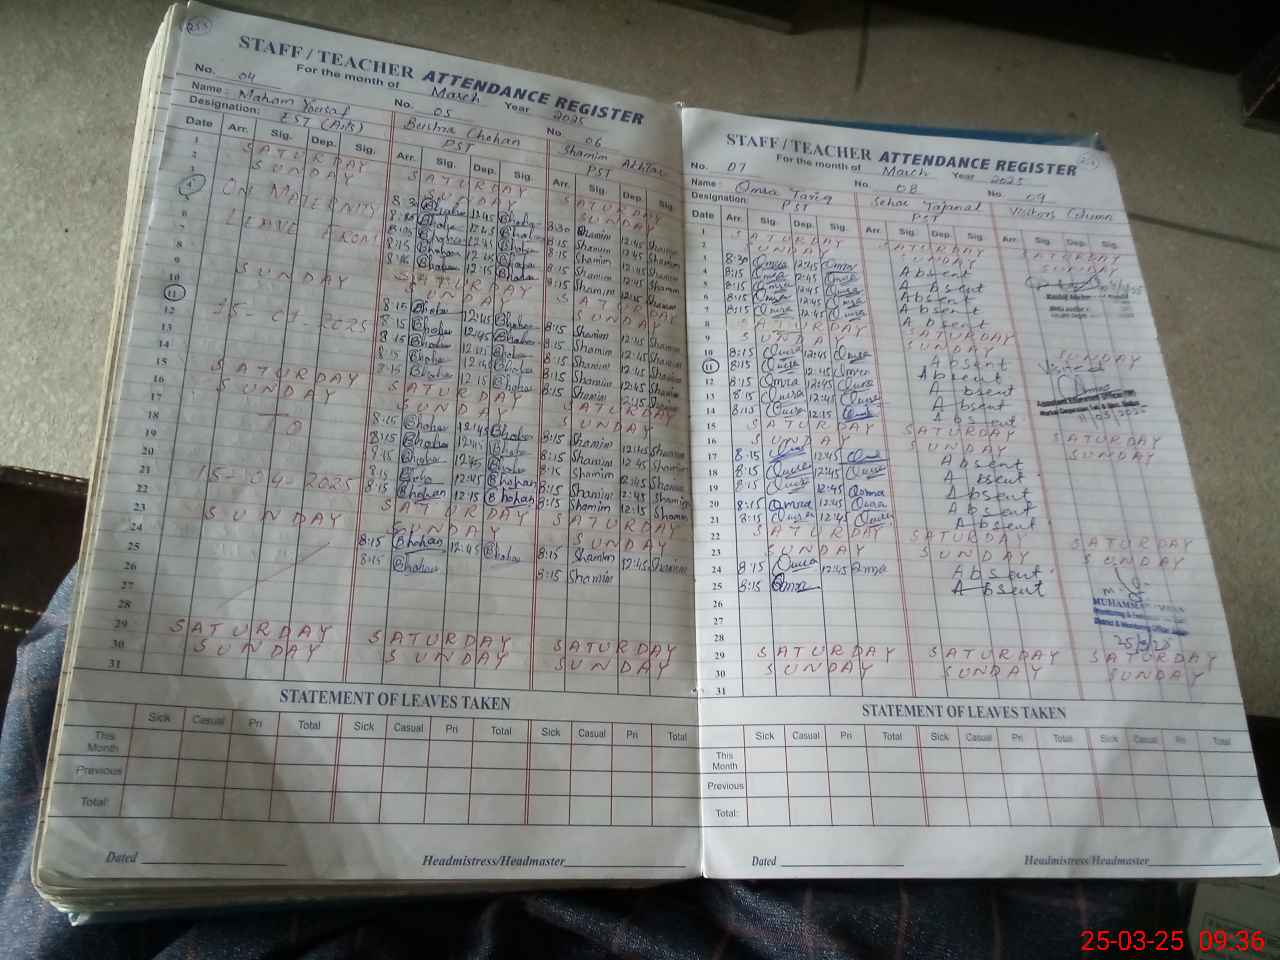 STAFF / TEACHER ATTENDANCE REGISTER
For the month of March Year 2025
No. 04 No. 05 No. 06
Name: Maham Yousaf Bushra Chohan Shamim Akhtar
Designation: EST (Arts) PST PST
Date Arr. Sig. Dep. Sig. Arr. Sig. Dep. Sig. Arr. Sig. Dep. Sig.
1 SATURDAY SATURDAY SATURDAY
2 SUNDAY SUNDAY SUNDAY
3 8:30 12:45 8:30 Shamim 12:45 Shamim
4 ON MATERNITY 8:15 12:45 8:15 Shamim 12:45 Shamim
5 8:15 12:45 8:15 Shamim 12:45 Shamim
6 LEAVE FROM 8:15 12:45 8:15 Shamim 12:45 Shamim
7 8:15 12:15 8:15 Shamim 12:15 Shamim
8 SATURDAY SATURDAY
9 SUNDAY SUNDAY SUNDAY
10 8:15 12:45 8:15 Shamim 12:45 Shamim
11 8:15 12:45 8:15 Shamim 12:45 Shamim
12 2025 8:15 12:45 8:15 Shamim 12:45 Shamim
13 8:15 12:45 8:15 Shamim 12:45 Shamim
14 8:15 12:15 8:15 Shamim 12:15 Shamim
15 SATURDAY SATURDAY SATURDAY
16 SUNDAY SUNDAY SUNDAY
17 8:15 12:45 8:15 Shamim 12:45 Shamim
18 TO 8:15 12:45 8:15 Shamim 12:45 Shamim
19 8:15 12:45 8:15 Shamim 12:45 Shamim
20 8:15 12:45 8:15 Shamim 12:45 Shamim
21 15-04-2025 8:15 Bhohan 12:15 Bhohan 8:15 Shamim 12:15 Shamim
22 SATURDAY SATURDAY
23 SUNDAY SUNDAY SUNDAY
24 8:15 Bhohan 12:45 8:15 Shamim 12:45 Shamim
25 8:15 8:15 Shamim
26
27
28
29 SATURDAY SATURDAY SATURDAY
30 SUNDAY SUNDAY SUNDAY
31
STATEMENT OF LEAVES TAKEN
Sick Casual Pri Total Sick Casual Pri Total Sick Casual Pri Total
This Month
Previous
Total:
Dated Headmistress/Headmaster
STAFF / TEACHER ATTENDANCE REGISTER
For the month of March Year 2025
No. 07 No. 08 No. 09
Name: Omra Tariq Sehar Tajamal Visitors Column
Designation: PST PST
Date Arr. Sig. Dep. Sig. Arr. Sig. Dep. Sig. Arr. Sig. Dep. Sig.
1 SATURDAY SATURDAY SATURDAY
2 SUNDAY SUNDAY SUNDAY
3 8:30 Omra 12:45 Omra Absent
4 8:15 Omra 12:45 Omra Absent
5 8:15 Omra 12:45 Omra Absent
6 8:15 Omra 12:45 Omra Absent
7 8:15 Omra 12:15 Omra Absent
8 SATURDAY SATURDAY
9 SUNDAY SUNDAY SUNDAY
10 8:15 Omra 12:45 Omra Absent
11 8:15 Omra 12:45 Omra Absent
12 8:15 Omra 12:45 Omra Absent
13 8:15 Omra 12:45 Omra Absent
14 8:15 Omra 12:15 Omra Absent
15 SATURDAY SATURDAY SATURDAY
16 SUNDAY SUNDAY SUNDAY
17 8:15 Omra 12:45 Omra Absent
18 8:15 Omra 12:45 Omra Absent
19 8:15 Omra 12:45 Omra Absent
20 8:15 Omra 12:45 Omra Absent
21 8:15 Omra 12:45 Omra Absent
22 SATURDAY SATURDAY SATURDAY
23 SUNDAY SUNDAY SUNDAY
24 8:15 Omra 12:45 Omra Absent
25 8:15 Omra Absent
26 MUHAMMAD
27
28
29 SATURDAY SATURDAY SATURDAY
30 SUNDAY SUNDAY SUNDAY
31
STATEMENT OF LEAVES TAKEN
Sick Casual Pri Total Sick Casual Pri Total Sick Casual Pri Total
This Month
Previous
Total:
Dated Headmistress/Headmaster
25-03-25 09:36